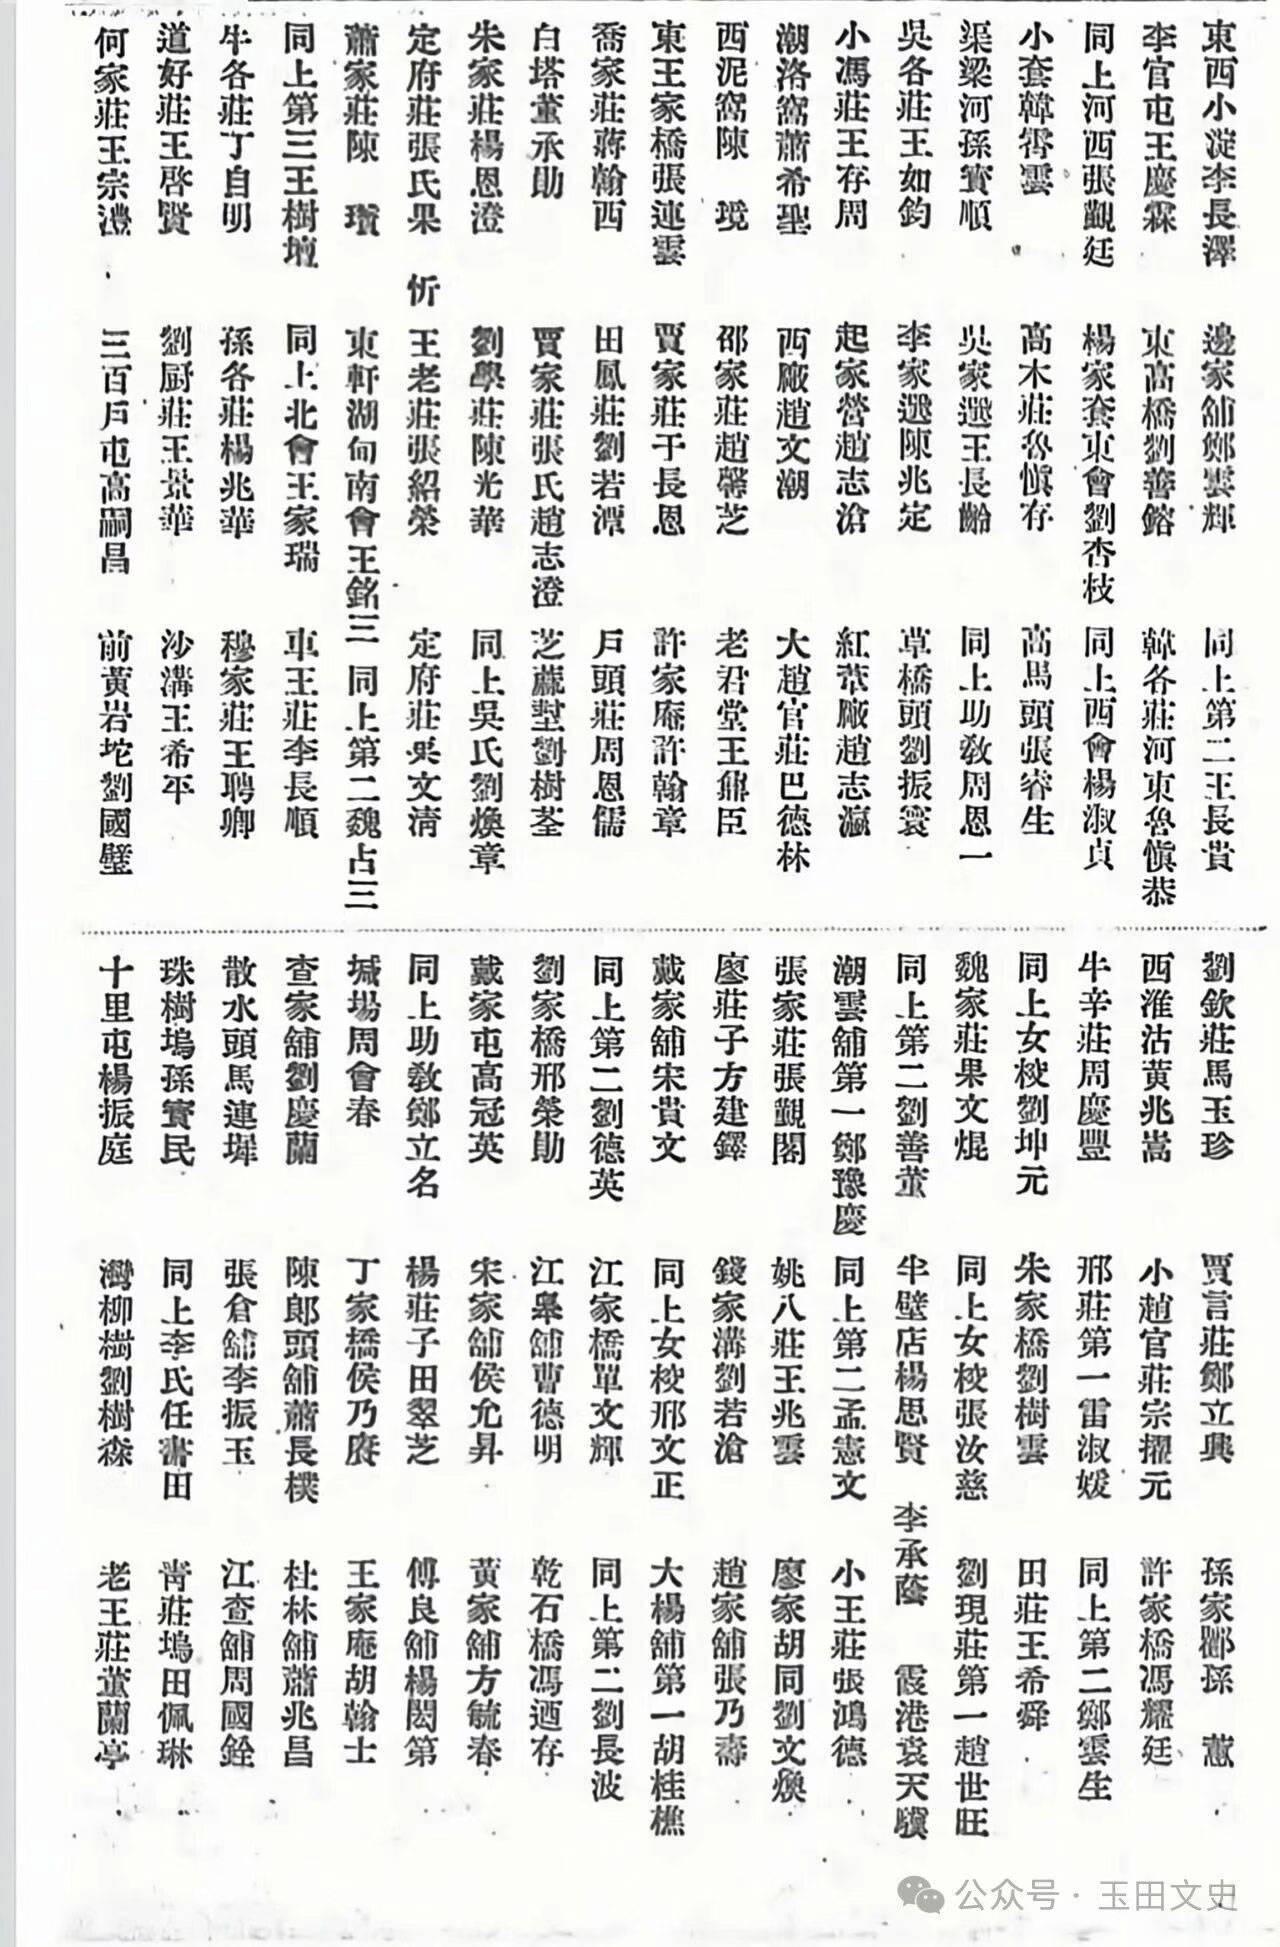 東西小淀李長澤　邊家舖鄭雲輝　同上第二王長貴
李官屯王慶霖　東高橋劉善鎔　韓各莊河東魯愼恭
同上河西張觀廷　楊家套東會劉杏枝　同上西會楊淑貞
小套韓霱雲　高木莊魯愼存　高馬頭張睿生
渠梁河孫實順　吳家選王長齡　同上助敎周恩一
吳各莊王如鈞　李家選陳兆定　草橋頭劉振寰
小馮莊王存周　起家營趙志滄　紅葦廠趙志瀛
潮洛窩蕭希聖　西廠趙文潮　大趙官莊巴德林
西泥窩陳　邵家莊趙馨芝　老君堂王鼐臣
東王家橋張連雲　賈家莊于長恩　許家庵許翰章
喬家莊蔣翰西　田鳳莊劉若潭　戶頭莊周恩儒
白塔董承勛　賈家莊張氏趙志澄　芝蔴堼劉樹荃
朱家莊楊恩澄　劉學莊陳光華　同上吳氏劉煥章
定府莊張氏果　忻　王老莊張紹榮　定府莊吳文清
蕭家莊陳　瓚　東軒湖甸南會王銘三　同上第二魏占三
同上第三王樹壇　同上北會王家瑞　車王莊李長順
牛各莊丁自明　孫各莊楊兆華　穆家莊王聘卿
道好莊王啓賢　劉厨莊王景華　沙溝王希平
何家莊王宗澧　三百戶屯高嗣昌　前黃岩坨劉國璧
劉欽莊馬玉珍　賈言莊鄭立興　孫家酈孫　蕙
西淮沽黃兆嵩　小趙官莊宗擢元　許家橋馮耀廷
牛辛莊周慶豐　邢莊第一雷淑媛　同上第二鄭雲生
同上女校劉坤元　朱家橋劉樹雲　田莊王希舜
魏家莊果文焜　同上女校張汝慈　劉現莊第一趙世旺
同上第二劉善董　半壁店楊思賢　李承蔭　霞港袁天驥
潮雲舖第一鄭豫慶　同上第二孟憲文　小王莊張鴻德
張家莊張觀閣　姚八莊王兆雲　廖家胡同劉文煥
廖莊子方建鐸　錢家溝劉若滄　趙家舖張乃壽
戴家舖宋貴文　同上女校邢文正　大楊舖第一胡桂樵
同上第二劉德英　江家橋單文輝　同上第二劉長波
劉家橋邢榮勛　江舉舖曹德明　乾石橋馮迺存
戴家屯高冠英　宋家舖侯允昇　黃家舖方毓春
同上助敎鄭立名　楊莊子田翠芝　傅良舖楊閎第
堿場周會春　丁家橋侯乃賡　王家庵胡翰士
查家舖劉慶蘭　陳郎頭舖蕭長樸　杜林舖蕭兆昌
散水頭馬連墀　張倉舖李振玉　江查舖周國銓
珠樹塢孫實民　同上李氏任書田　靑莊塢田佩琳
十里屯楊振庭　灣柳樹劉樹森　老王莊董蘭亭
公众号 · 玉田文史